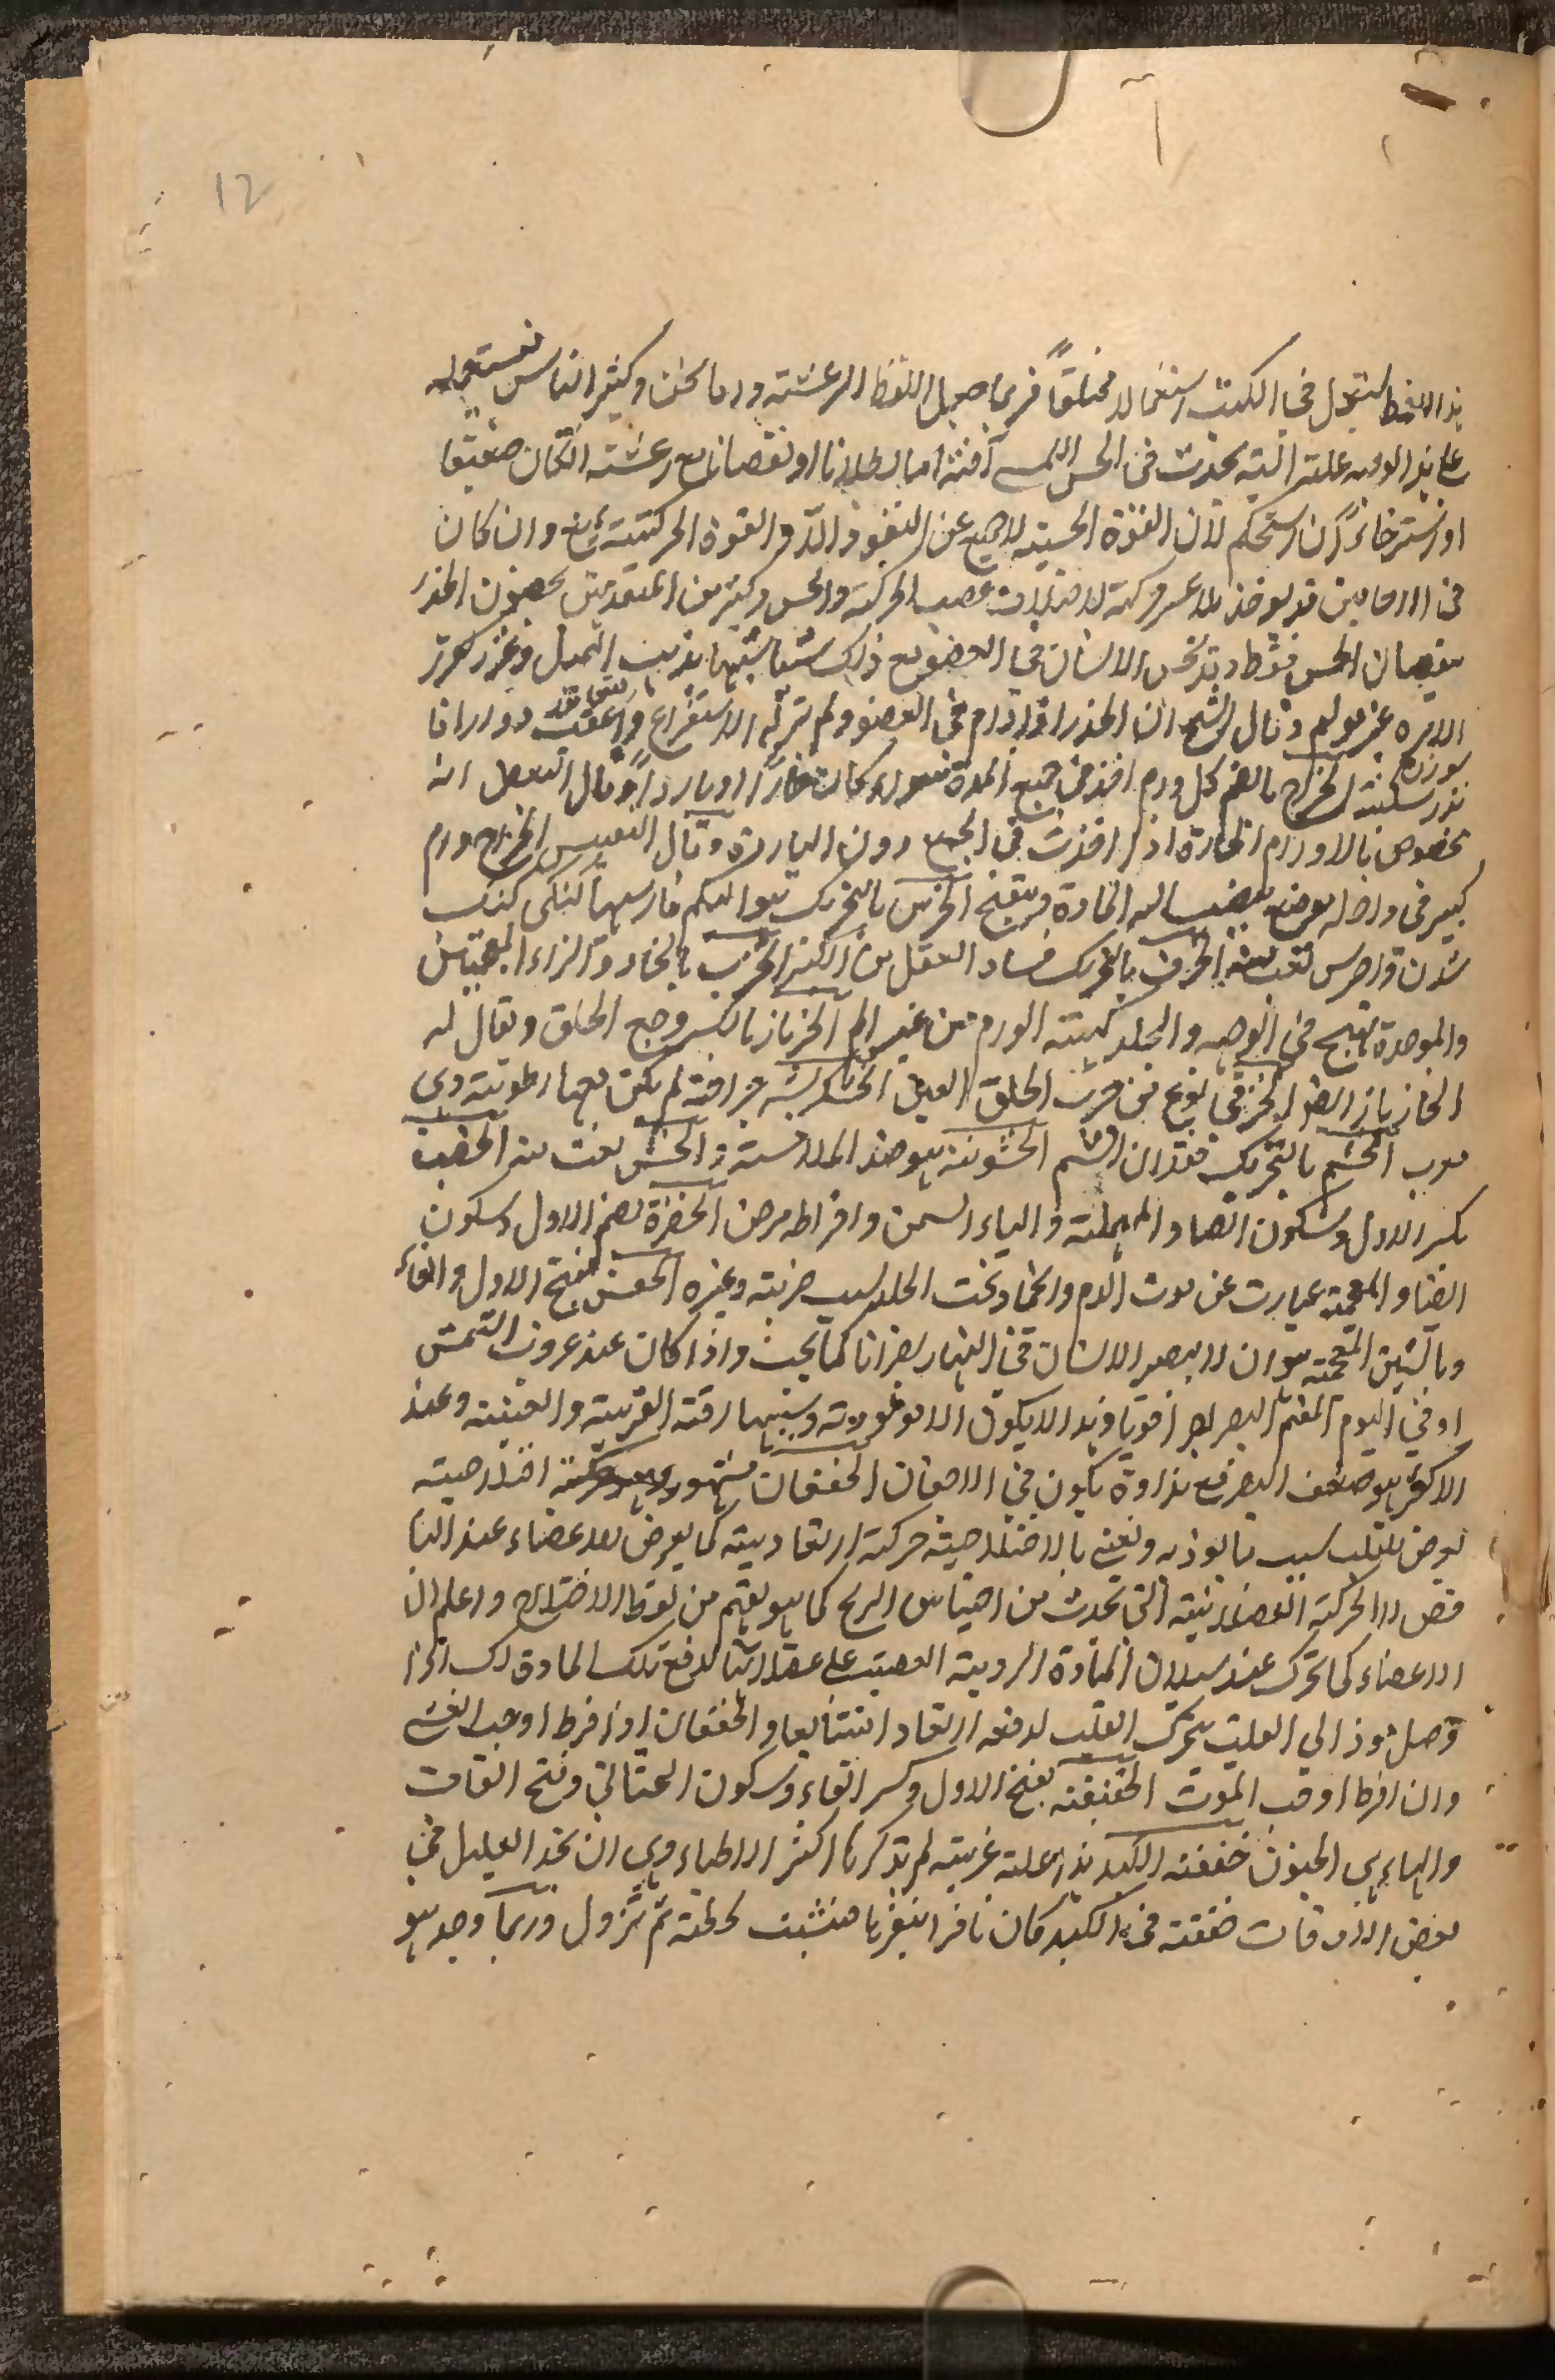 12
هذا اللفظ يستعمل في الكتب استعمالا مختلفاً فربما جعل اللفظ الرعشة واما نحن وكثير الناس نستعمله
على هذا الوجه علة آلية تحدث في الحس اللمسي آفة اما بطلانا او نقصانا مع رعشة ان كان ضعيفا
او استرخاءً ان استحكم لان القوة الحسية لا تمتنع عن النفوذ الا والقوة الحركية تمتنع وان كان
في الاحايين قد يوجد بلا عسر حركة لاختلاف عصب الحركة والحس وكثير من المتقدمين يخصون الخدر
بنقصان الحس فقط وقد يحس الانسان في العضو مع ذلك شيئا شبيها بدبيب النمل وغرز كغرز
الابره غير مولم وقال الشيخ ان الخدر اذا دام في العضو ولم يزله الاستفراغ واعقب دوارا فا
نذر بسكتة الخراج بالضم كل ورم اخذ في جمع المدة سواء كان حارًا او باردًا وقال البعض انه
مخصوص بالاورام الحارة اذا اخذت في الجمع دون الباردة وقال النفيس الخراج ورم
كبير في داخله موضع ينصب اليه المادة ويتقيح الخرس بالتحريك هو البكم فارسيها كنكى كنك
شدن واخرس نعت منه الخرف بالتحريك فساد العقل من الكبر الخزب بالخاء والزاء المعجمتين
والموحدة تهيج في الوجه والجلد كهيئة الورم من غير الم الخزباز بالكسر وجع الحلق ويقال له
الخازباز ايضا الخزفى نوع من جرب الحلق
الخشم بالتحريك فقدان الشم الخشونة هو ضد الملاسة والخشن نعت منه
بكسر الاول وسكون الصاد المهملة والياء السمن وافراطه مرض الخضرة بضم الاول وسكون
الضاد المعجمة عبارت عن موت الدم تحت الجلد بسبب ضربة وغيره الخفش بفتح الاول والفاء
وبالشين المعجمة هو ان لا يبصر الانسان في النهار ابصارا كما يجب واذا كان عند غروب الشمس
او في اليوم المغيم ابصر ابصارا قويا وهذا لا يكون الا مولودية وسببها رقة القرنية والعنبية وعند
الاكثر هو ضعف البصر مع نداوة تكون في الاجفان الخفقان مشهور وهو حركة اختلاجية
يعرض للقلب بسبب ما يوذيه ونعني بالاختلاجية حركة ارتعادية كما يعرض للاعضاء عند النا
فض لا الحركة العضلانية التي تحدث من احتباس الريح كما هو يفهم من لفظ الاختلاج واعلم ان
الاعضاء كما تتحرك عند سيلان المادة الردية العصبية على عضلاتها لدفع تلك المادة كذلك اذا
وصل موذ الى القلب يتحرك القلب لدفعه ارتعادا متتابعا والخفقان اذا افرط اوجب الغشي
وان افرط اوجب الموت الخفيقة بفتح الاول وكسر الفاء وسكون التحتاني وفتح القاف
والهاء هي الجنون خفقة الكبد هذا علة غريبة لم يذكرها اكثر الاطباء وهي ان يجد العليل في
بعض الاوقات خفقة في الكبد كان ناقرا ينقرها فتثبت لحظة ثم تزول وربما وجد هو